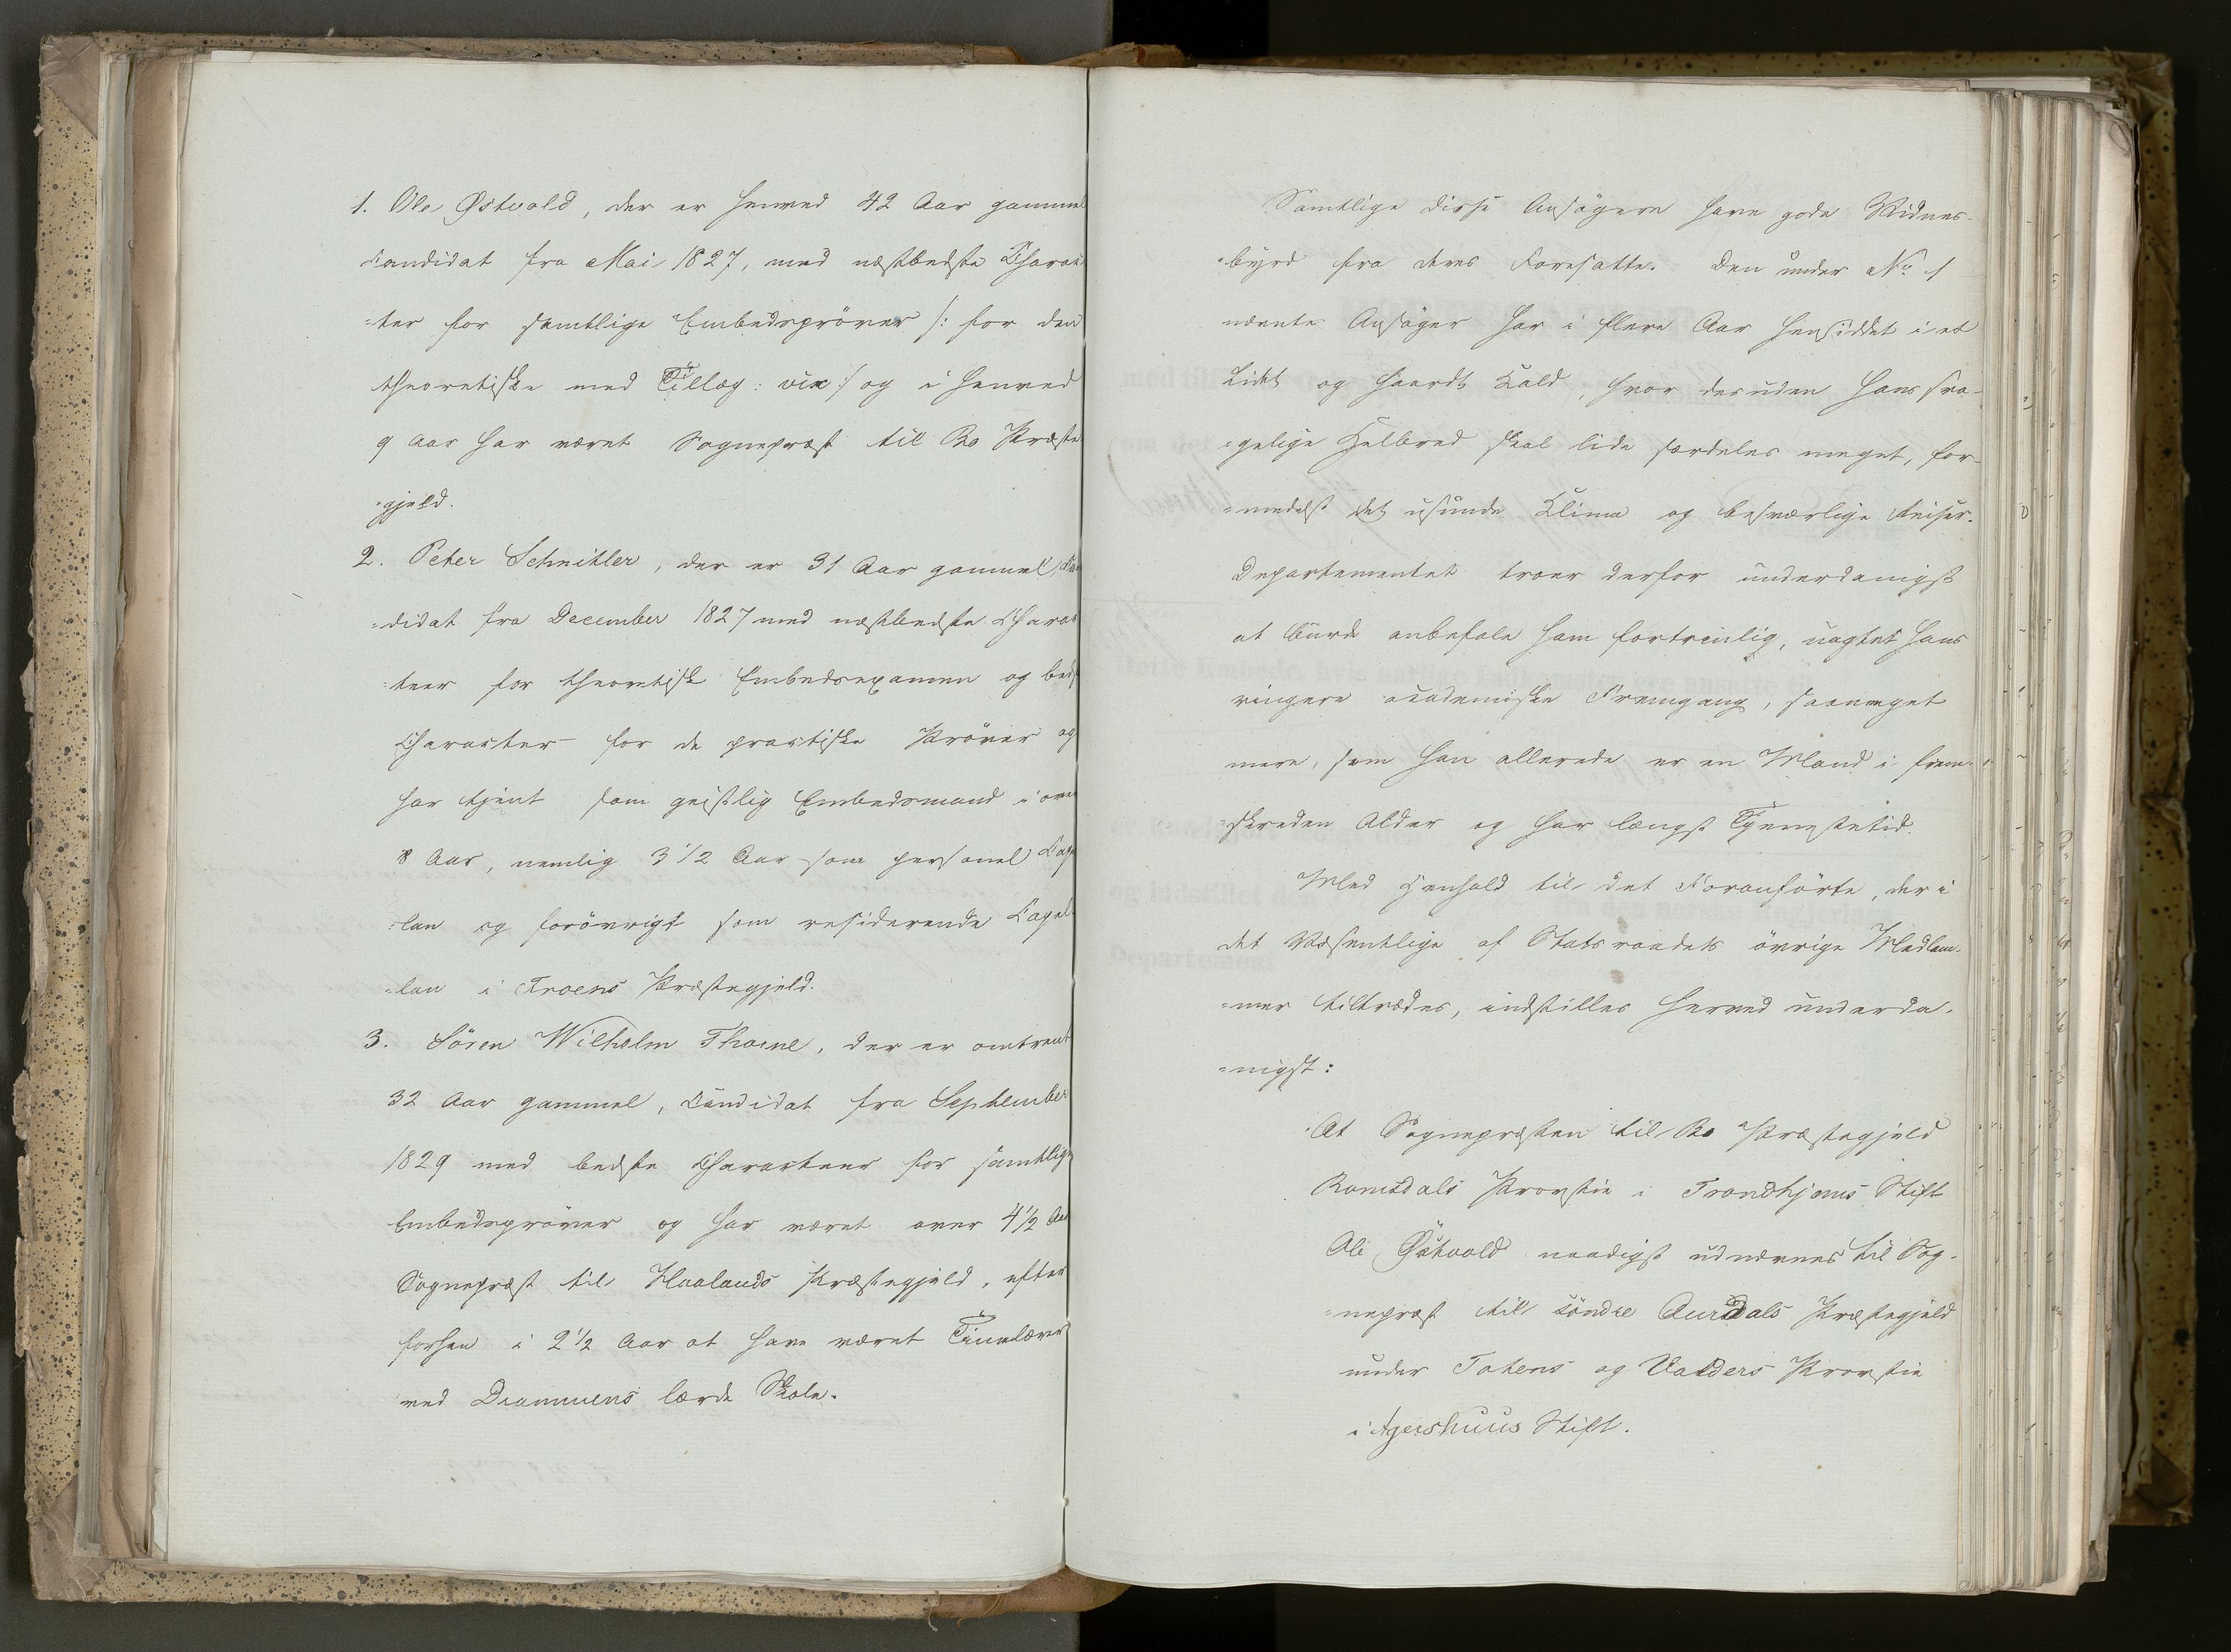 1. Ole Østvold, der er henved 42 Aar gammel
Candidat fra Mai 1827, med næstbedste Charak
=ter for samtlige Embedspröver /: for den
theoretiske med Tillæg: vix :/ og i henved
9 Aar har været Sognepræst til Bo Præste
=gjeld.
2. Peter Schnitler, der er 31 Aar gammel, Can
=didat fra December 1827 med næstbedste Charak
=teer for theoretisk Embedsexamen og beds
Charakter for de practiske Pröver og
har tjent som geistlig Embedsmand i over
8 Aar, nemlig 3 1/2 Aar som personel Cape
=lan og forövrigt som residerende Capel
=lan i Froens Præstegjeld.
3. Sören Wilhelm Thorne, der er omtrent
32 Aar gammel, Candidat fra September
1829 med bedste Charakteer for samtlige
Embedspröver og har været over 4 1/2 Aar
Sognepræst til Haalands Præstegjeld, efter
forhen i 2 1/2 Aar at have været Timelærer
ved Drammens lærde Skole.
Samtlige disse Ansögere have gode Vidnes-
=byrd fra deres Foresatte. Den under No 1
nævnte Ansöger har i flere Aar hensiddet i et
lidet og haardt Kald, hvor desuden hans sva-
=gelige Helbred skal lide særdeles meget, for-
=medelst det usunde Clima og besværlige Reiser.
Departementet troer derfor underdanigst
at burde anbefale ham fortrinlig, uagtet hans
ringere academiske Fremgang, saameget
mere, som han allerede er en Mand i frem-
=skreden Alder og har længst Tjenestetid.
Med Henhold til det Foranförte, der i
det Væsentlige af Statsraadets övrige Medlem-
=mer tiltrædes, indstilles herved underda-
=nigst:
At Sognepræsten til Bo Præstegjeld
Romsdals Provstie i Trondhjems Stift
Ole Østvold naadigst udnævnes til Sog-
=nepræst til söndre Aurdals Præstegjeld
under Totens og Valders Provstie
i Agershuus Stift.